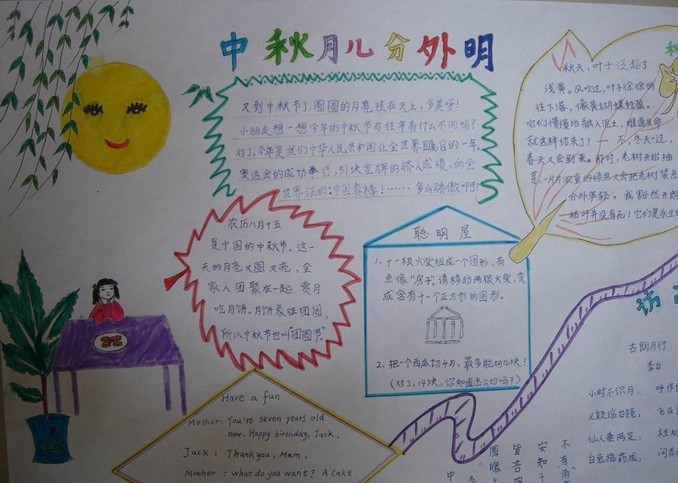 中秋月儿分外明
又到中秋节了,圆圆的月亮挂在天上,多美呀!
小朋友想一想今年的中秋节与往年有什么不同吗?
对了,今年是我们中华人民共和国让全世界瞩目的一年,
奥运会的成功举行,51块金牌的骄人成绩,向全
世界证明:中国最棒!……多么骄傲啊!
农历八月十五
是中国的中秋节,这一
天的月亮又圆又亮,全
家人团聚在一起赏月
吃月饼。月饼象征团圆,
所以中秋节也叫"团圆节"
聪明屋
1、十一根火柴组成一个图形,有
点像"房子",请移动两根火柴,变
成含有十一个正方形的图形。
2、把一个西瓜切4刀,最多能切几块?
(对了,14块,你知道怎么切吗?)
秋天,叶子泛起了
浅黄。风吹过,叶子徐徐的
往下落,像黄蝴蝶轻盈。
它们慢慢地融入泥土,难道生命
就这样结束了?一不,冬天过,
春天又会到来。那时,老树开始抽
Have a fun
Mother: You're seven years old
now. Happy birthday, Jack.
Jack: Thank you, Mum.
Mother: what do you want? A cake
古朗月行
李白
小时不识月,
又疑瑶台镜,
仙人垂两足,
白兔捣药成,